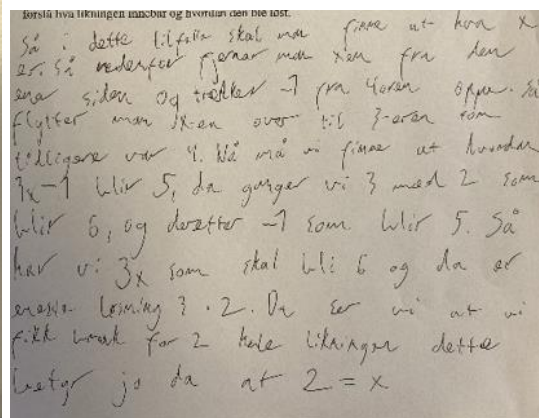 forstå hva likningen innebar og hvordan den ble løst.
Så i dette tilfelle skal man finne ut hva x
er. Så nedenfor fjerner man xen fra den
ene siden og trekker -1 fra 4eren oppe. Så
flytter man x-en over til 3-eren som
tidligere var 4. Nå må vi finne ut hvordan
3x-1 blir 5, da ganger vi 3 med 2 som
blir 6, og deretter -1 som blir 5. Så
har vi 3x som skal bli 6 og da er
eneste løsning 3 · 2. Da ser vi at vi
fikk bruk for 2 hele likningen dette
betyr jo da at 2 = x